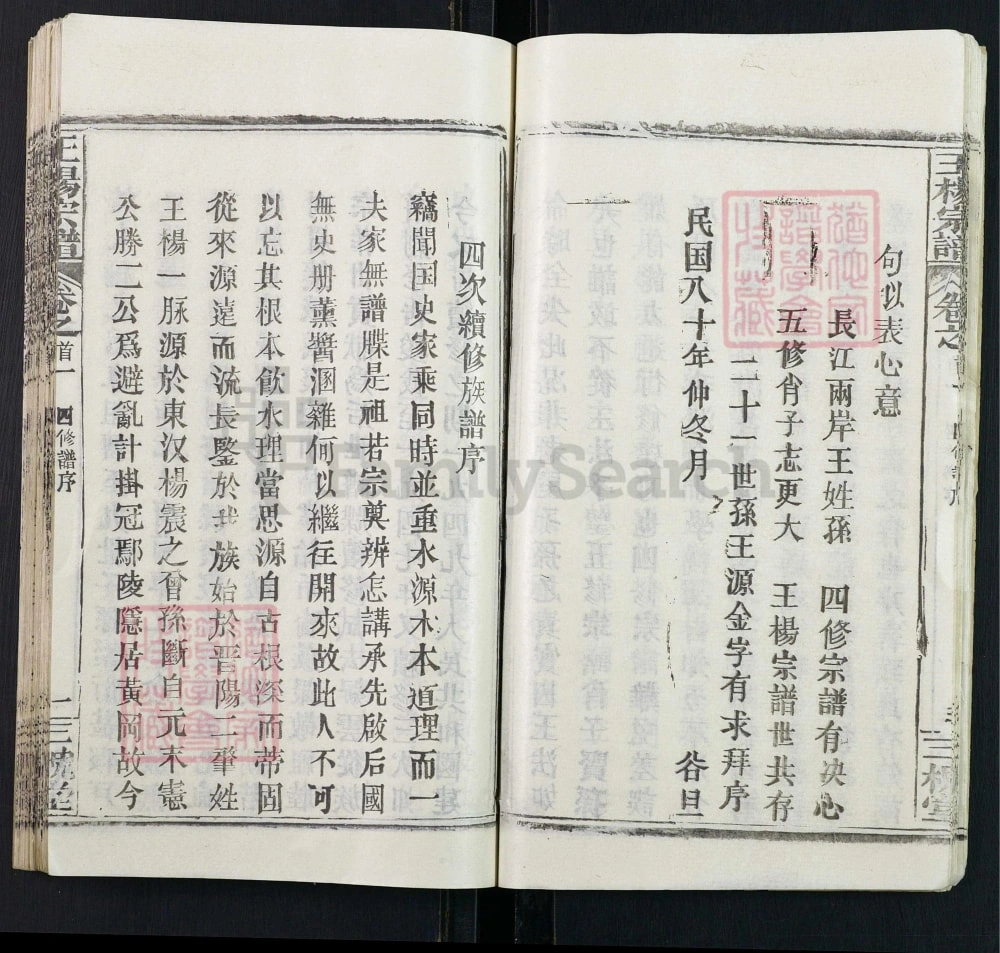 王楊宗譜
卷之首
句似表心意
長江兩岸王姓孫 四修宗譜有决心
五修肖子志更大 王楊宗譜世共存
二十一世孫王源金字有求拜序
民国八十年仲冬月 谷旦
四次續修族譜序
竊聞国史家乘同時並重水源木本道理而一
夫家無譜牒是祖若宗奠辨怎講承先啟后國
無史册薰蕕溷雜何以繼往開來故此人不可
以忘其根本飲水理當思源自古根深而蒂固
從來源遠而流長鑒於我族始於晋陽二肇姓
王楊一脉源於東汉楊震之曾孫斷自元末憲
公勝二公為避亂計掛冠鄢陵隱居黃岡故今
王楊宗譜
卷之首
四修譜序
三槐堂
FamilySearch